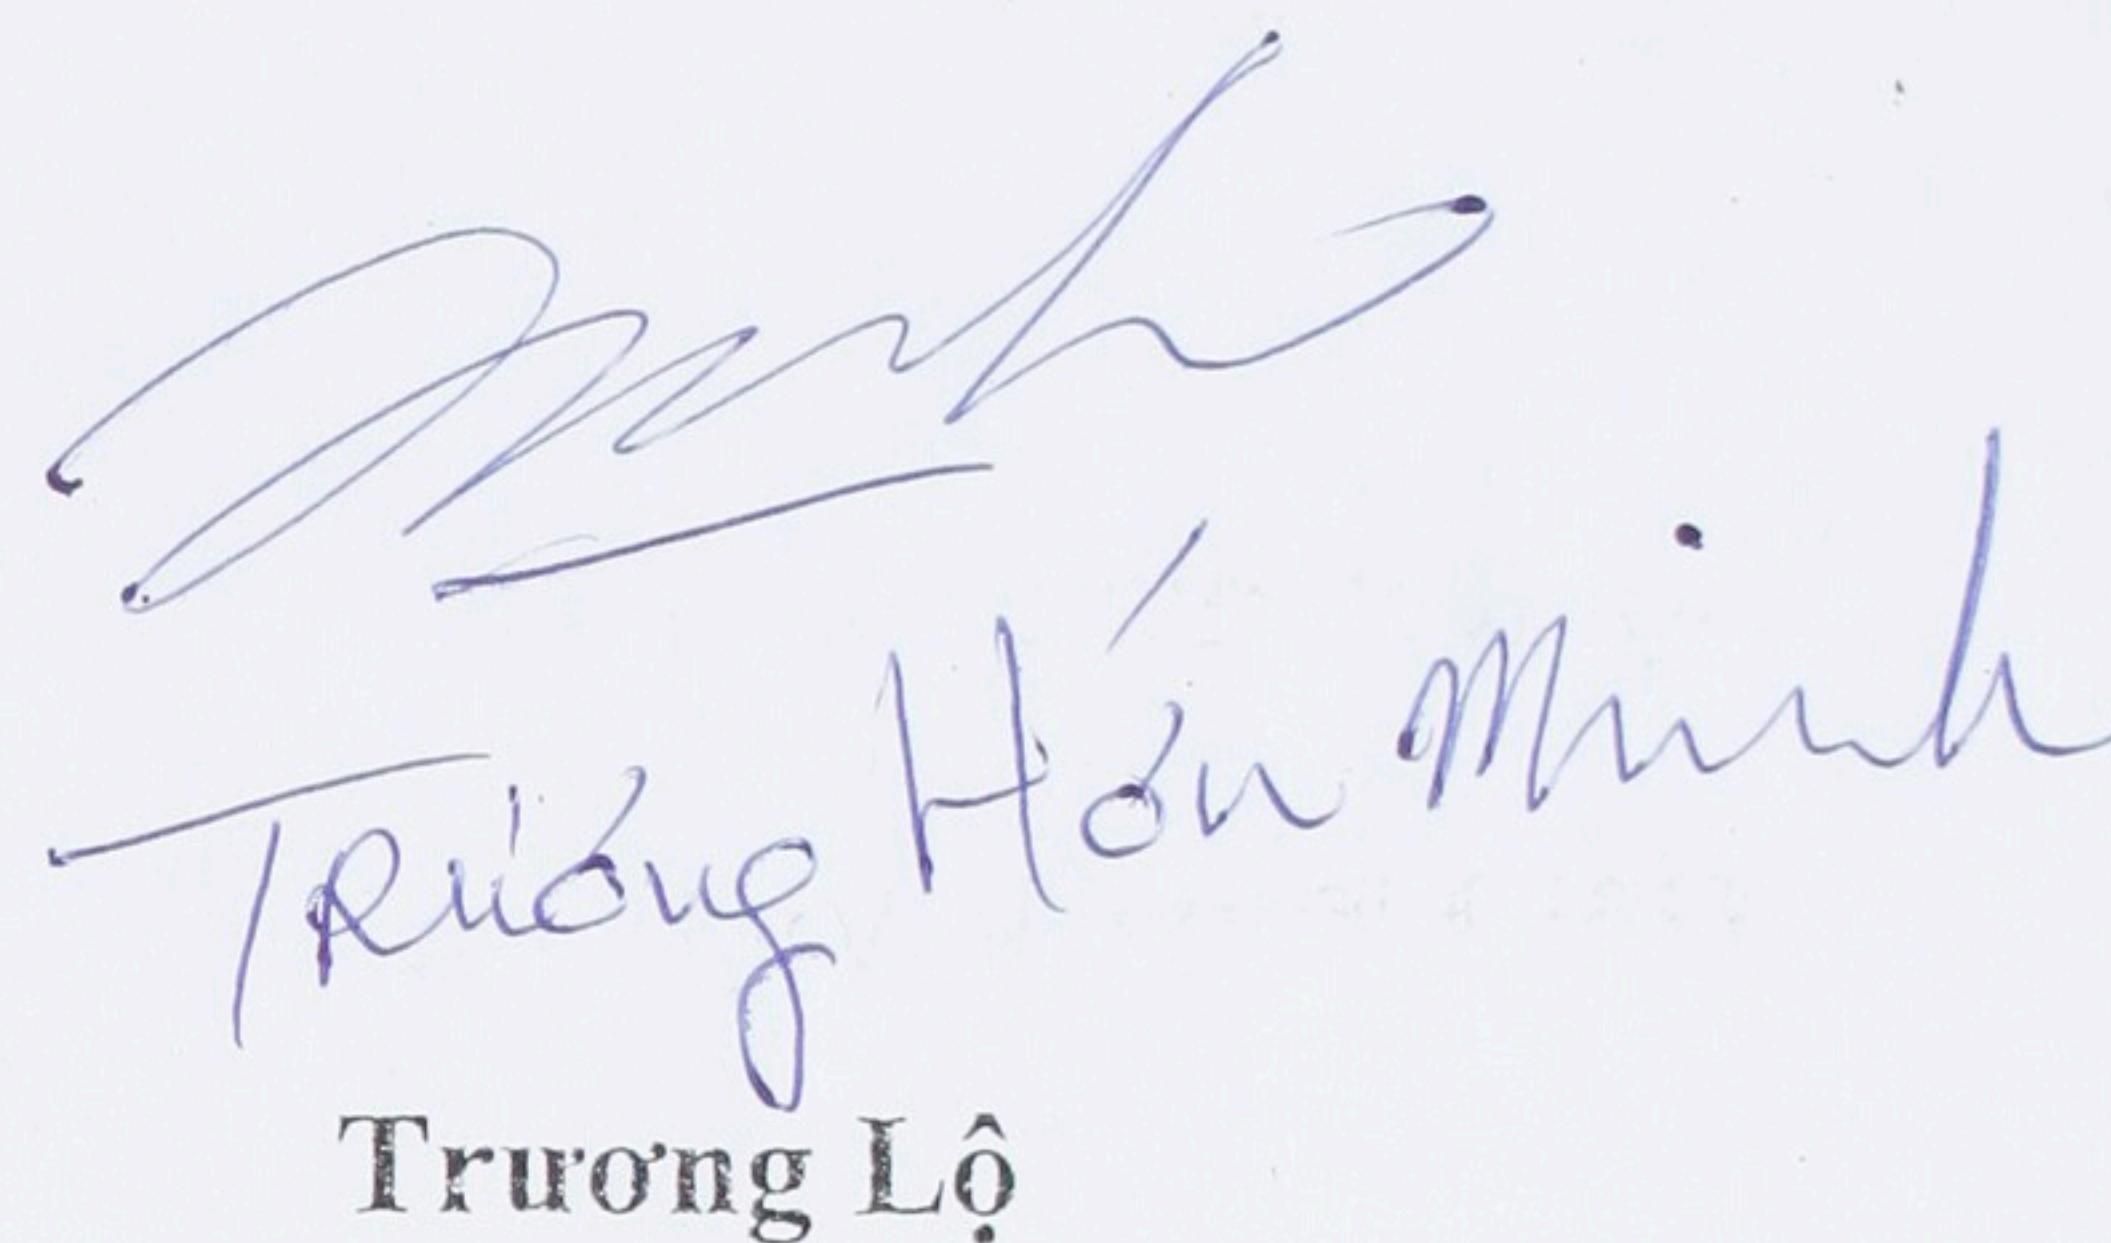 Trương Hớn Minh
Trương Lộ